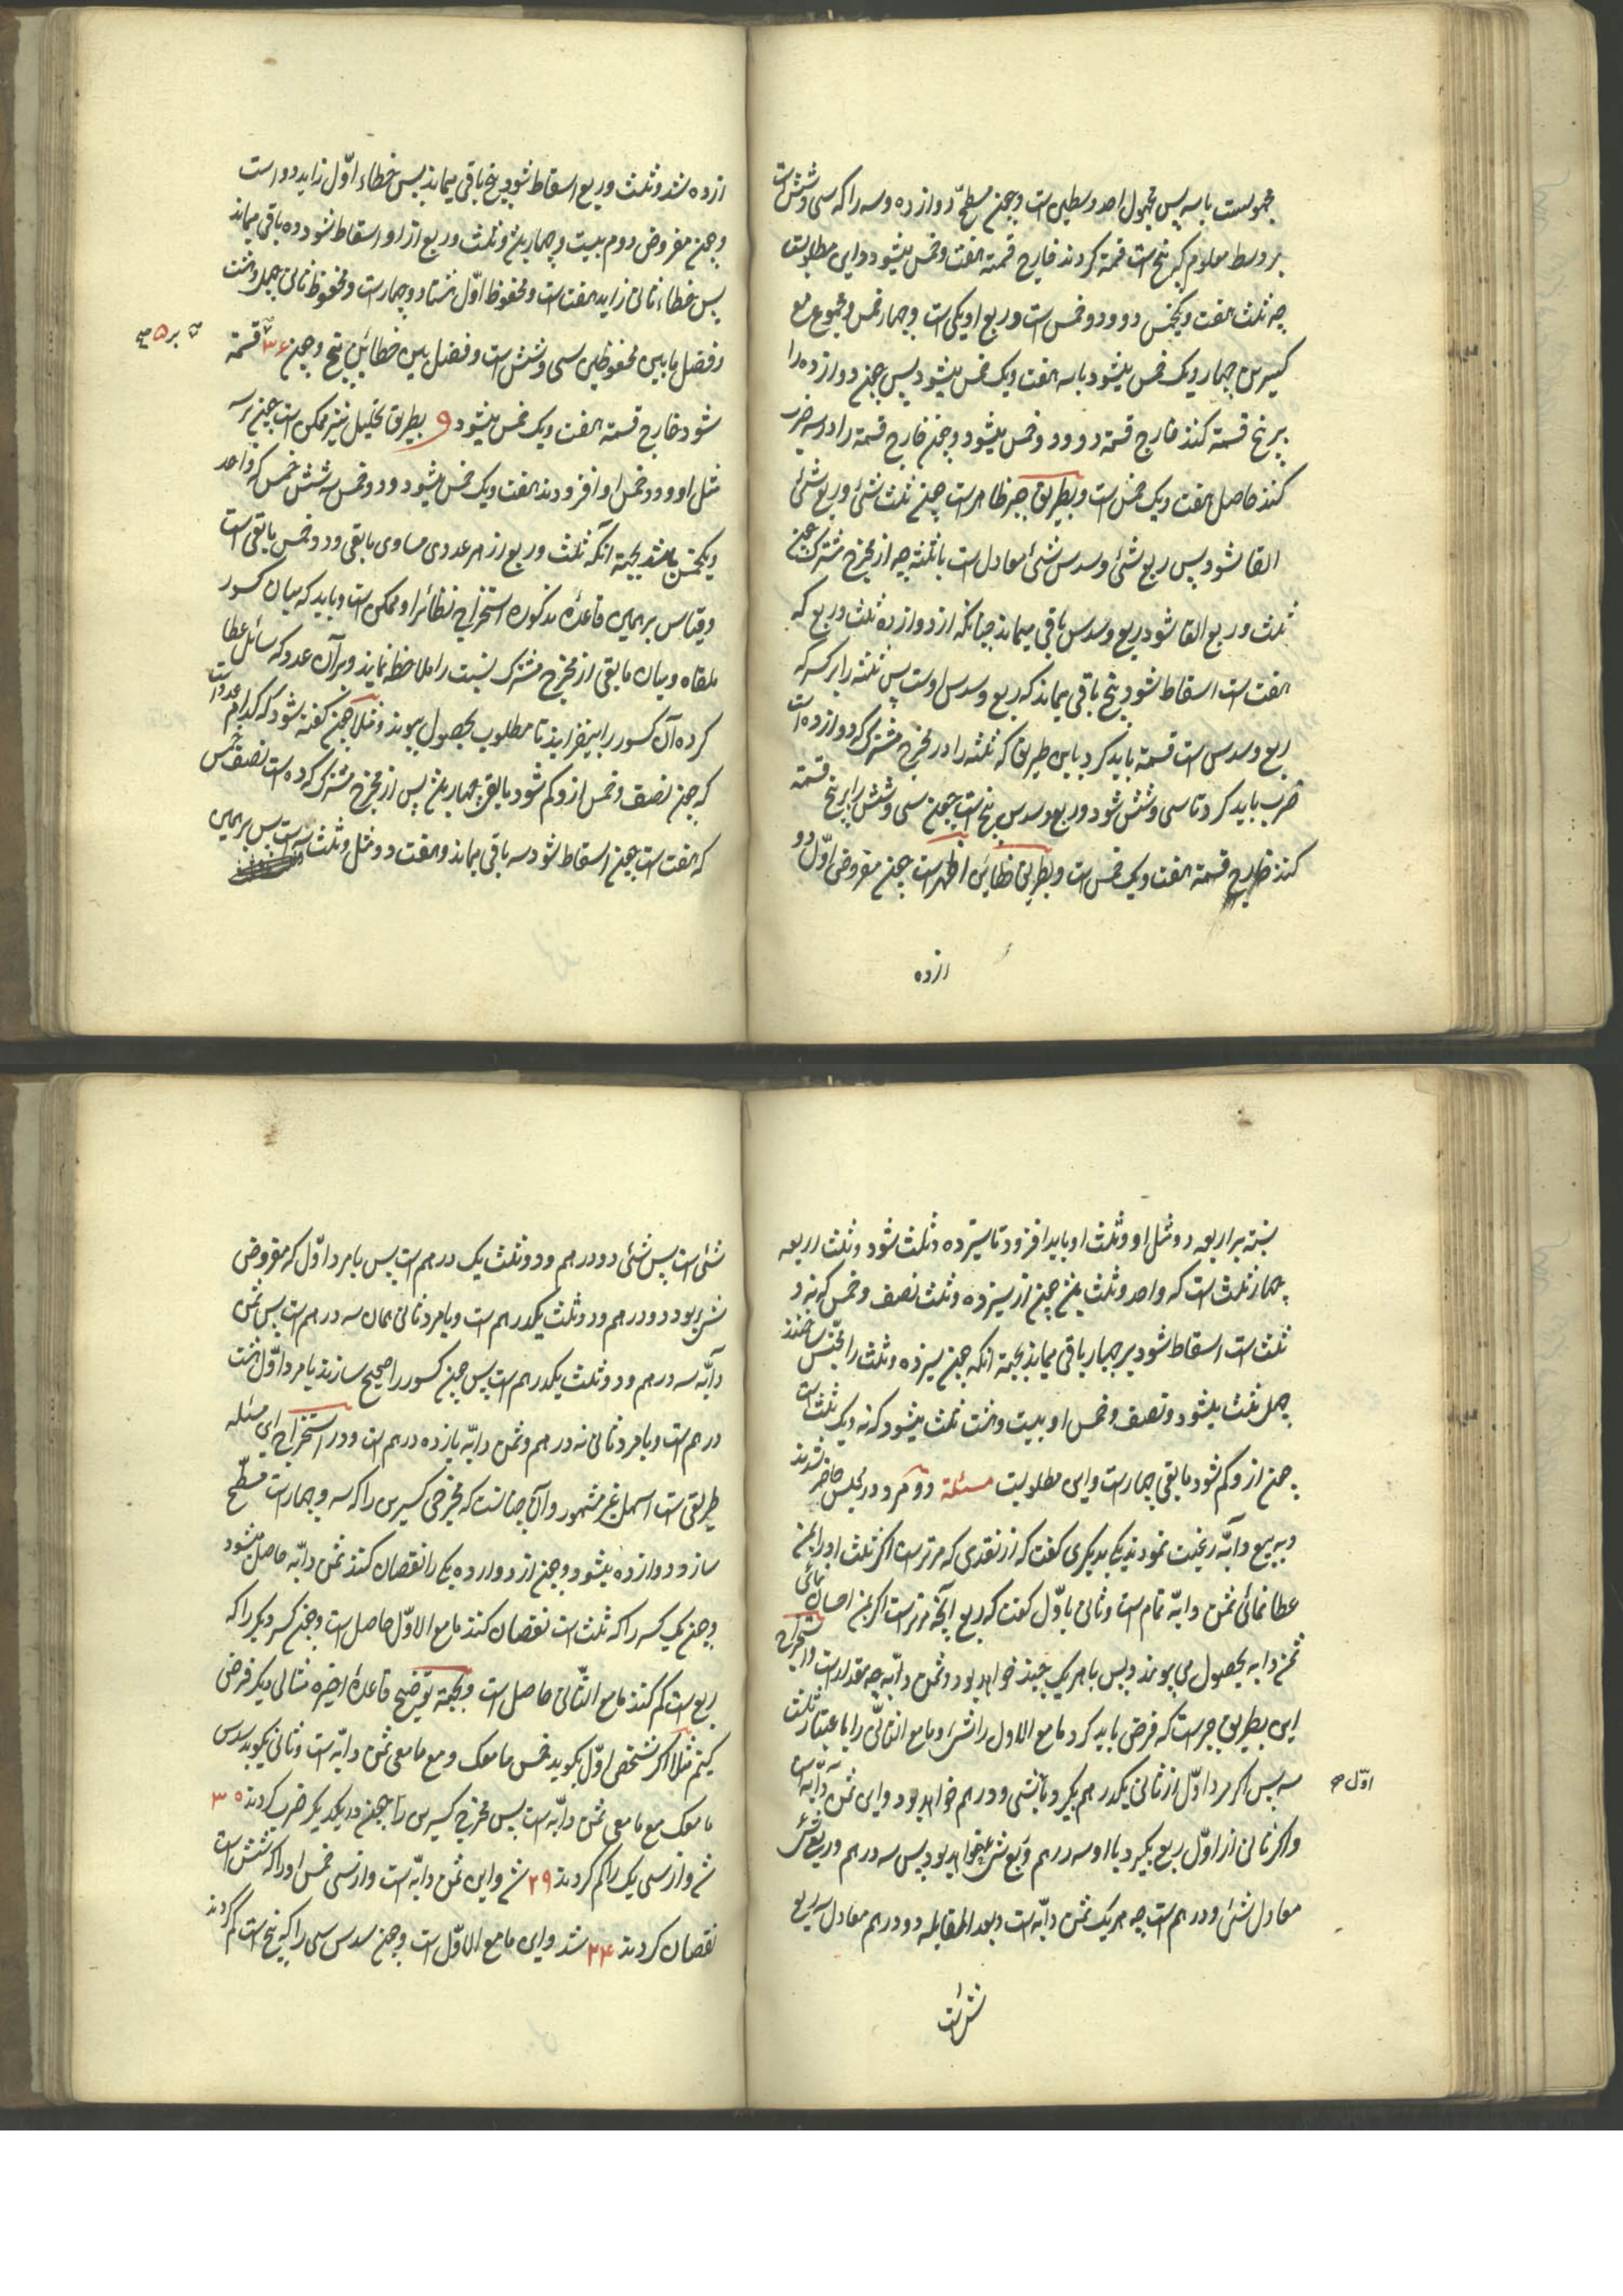 مجهولست با سه پس مجهول احد وسطین است و چون مسطح دوازده و سه را که سی و شش است
بر وسط معلوم که پنج است قسمة کردند خارج قسمة هفت و خمس میشود و این مطلوبست
چه ثلث هفت و یکخمس دو و دو خمس است و ربع او یکی است و چهار خمس و مجموع
کسرین چهار و یک خمس میشود با سه هفت و یک خمس میشود پس چون دوازده را
بر پنج قسمة کنند خارج قسمة دو و دو خمس میشود و چون خارج قسمة را در سه ضرب
کنند حاصل هفت و یک خمس است و بطریق جبر ظاهر است چون ثلث شئ و ربع شئ
القا شود پس ربع شئ و سدس شئ معادل است با ثلثه چه از مخرج مشترک چون
ثلث و ربع القا شود ربع و سدس باقی میماند چنانکه از دوازده ثلث و ربع که
هفت است اسقاط شود پنج باقی میماند که ربع و سدس اوست پس ثلثه را بر کسر که
ربع و سدس است قسمة باید کرد باین طریق که ثلثه را در مخرج مشترک که دوازده است
ضرب باید کرد تا سی و شش شود و ربع و سدس پنج است چون سی و شش را بر پنج قسمة
کنند خارج قسمة هفت و یک خمس است و بطریق خطائین اظهر است چون مفروض اول دو
ازده
ازده شد و ثلث و ربع اسقاط شود پنج باقی میماند پس خطاء اول زاید دو است
و چون مفروض دوم بیست و چهار باشد و ثلث و ربع از او اسقاط شود ده باقی میماند
پس خطاء ثانی زاید هفت است و محفوظ اول هشتاد و چهار است و محفوظ ثانی چهل و هشت
و فضل ما بین محفوظین سی و شش است و فضل بین خطائین پنج و چون ۳۶ قسمة
بر ۵
شود خارج قسمة هفت و یک خمس میشود و بطریق تحلیل نیز ممکن است چون بر سه
مثل او و دو خمس او افزودند هفت و یک خمس میشود و دو خمس سه شش خمس که واحد
و یکخمس باشد بجهة آنکه ثلث و ربع از هر عددی مساوی ما بقی و دو خمس ما بقی است
و قیاس بر همین قاعده مذکوره استخراج نظائر او ممکن است و باید که میان کسور
ملقاه و میان ما بقی از مخرج مشترک نسبت را ملاحظه نمایند و بر آن عدد که سائل عطا
کرده آن کسور را بیفزایند تا مطلوب بحصول پیوندد مثلا چون گفته شود که کدام عدد است
که چون نصف و خمس از و کم شود ما بقی چهار باشد پس از مخرج مشترک که ده است نصف و خمس
که هفت است چون اسقاط شود سه باقی میماند و هفت دو مثل و ثلث سه است پس بر همین
نسبة بر اربعه دو مثل او و ثلث او باید افزود تا سیزده و ثلث شود و ثلث اربعه
چهار ثلث است که واحد و ثلث باشد چون از سیزده و ثلث نصف و خمس که نه و
ثلث است اسقاط شود چهار باقی میماند بجهة آنکه چون سیزده و ثلث را مجنس ساختند
چهل ثلث میشود و نصف و خمس او بیست و هشت ثلث میشود که نه و یک ثلث است
چون از و کم شود ما بقی چهار است و این مطلوبست مسئلة دو مرد در مجلس حاضر شدند
و به بیع دابه رغبت نمودند یکی بدیگری گفت که از نقدی که مر تراست اگر ثلث او را بمن
عطا نمائی ثمن دابه تمام است و ثانی با اول گفت که ربع آنچه مر تراست اگر بمن احسان نمائی
ثمن دابه بحصول می پیوندد پس با هر یک چند خواهد بود و ثمن دابه چه مقدار است و استخراج
این بطریق جبر است که فرض باید کرد ما مع الاول را شئ و ما مع الثانی را باعتبار ثلث
سه پس اگر مرد اول از ثانی یکدرهم بگیرد با شئ و درهم خواهد بود و این ثمن دابه است
اول
و اگر ثانی از اول ربع بگیرد با او سه درهم و ربع شئ خواهد بود پس سه درهم و ربع شئ
معادل شئ و درهم است چه هر یک ثمن دابه است و بعد المقابله دو درهم معادل سه ربع
شئ است
شئ است پس شئ دو درهم و دو ثلث یک درهم است پس با مرد اول که مفروض
شئ بود دو درهم و دو ثلث یکدرهم است و با مرد ثانی همان سه درهم است پس ثمن
دابه سه درهم و دو ثلث یکدرهم است پس چون کسور را صحیح سازند با مرد اول هشت
درهم است و با مرد ثانی نه درهم و ثمن دابه یازده درهم است و در استخراج این مسئله
طریقی است اسهل غیر مشهور و آن چنانست که مخرجی کسرین را که سه و چهار است مسطح
سازد دوازده میشود و چون از دوازده یکی را نقصان کنند ثمن دابه حاصل میشود
و چون یک کسر را که ثلث است نقصان کنند ما مع الاول حاصل است و چون کسر دیگر را که
ربع است کم کنند ما مع الثانی حاصل است و بجهة توضیح قاعدة اخیره مثالی دیگر فرض
کنیم مثلا اگر شخص اول بگوید خمس ما معک و مع ما معی ثمن دابه است و ثانی بگوید سدس
ما معک مع ما معی ثمن دابه است پس مخرج کسرین را چون در یکدیگر ضرب کردند ۳۰
شد و از سی یک را کم کردند ۲۹ شد و این ثمن دابه است و از سی خمس او را که شش است
نقصان کردند ۲۴ شد و این ما مع الاول است و چون سدس سی را که پنج است کم کردند